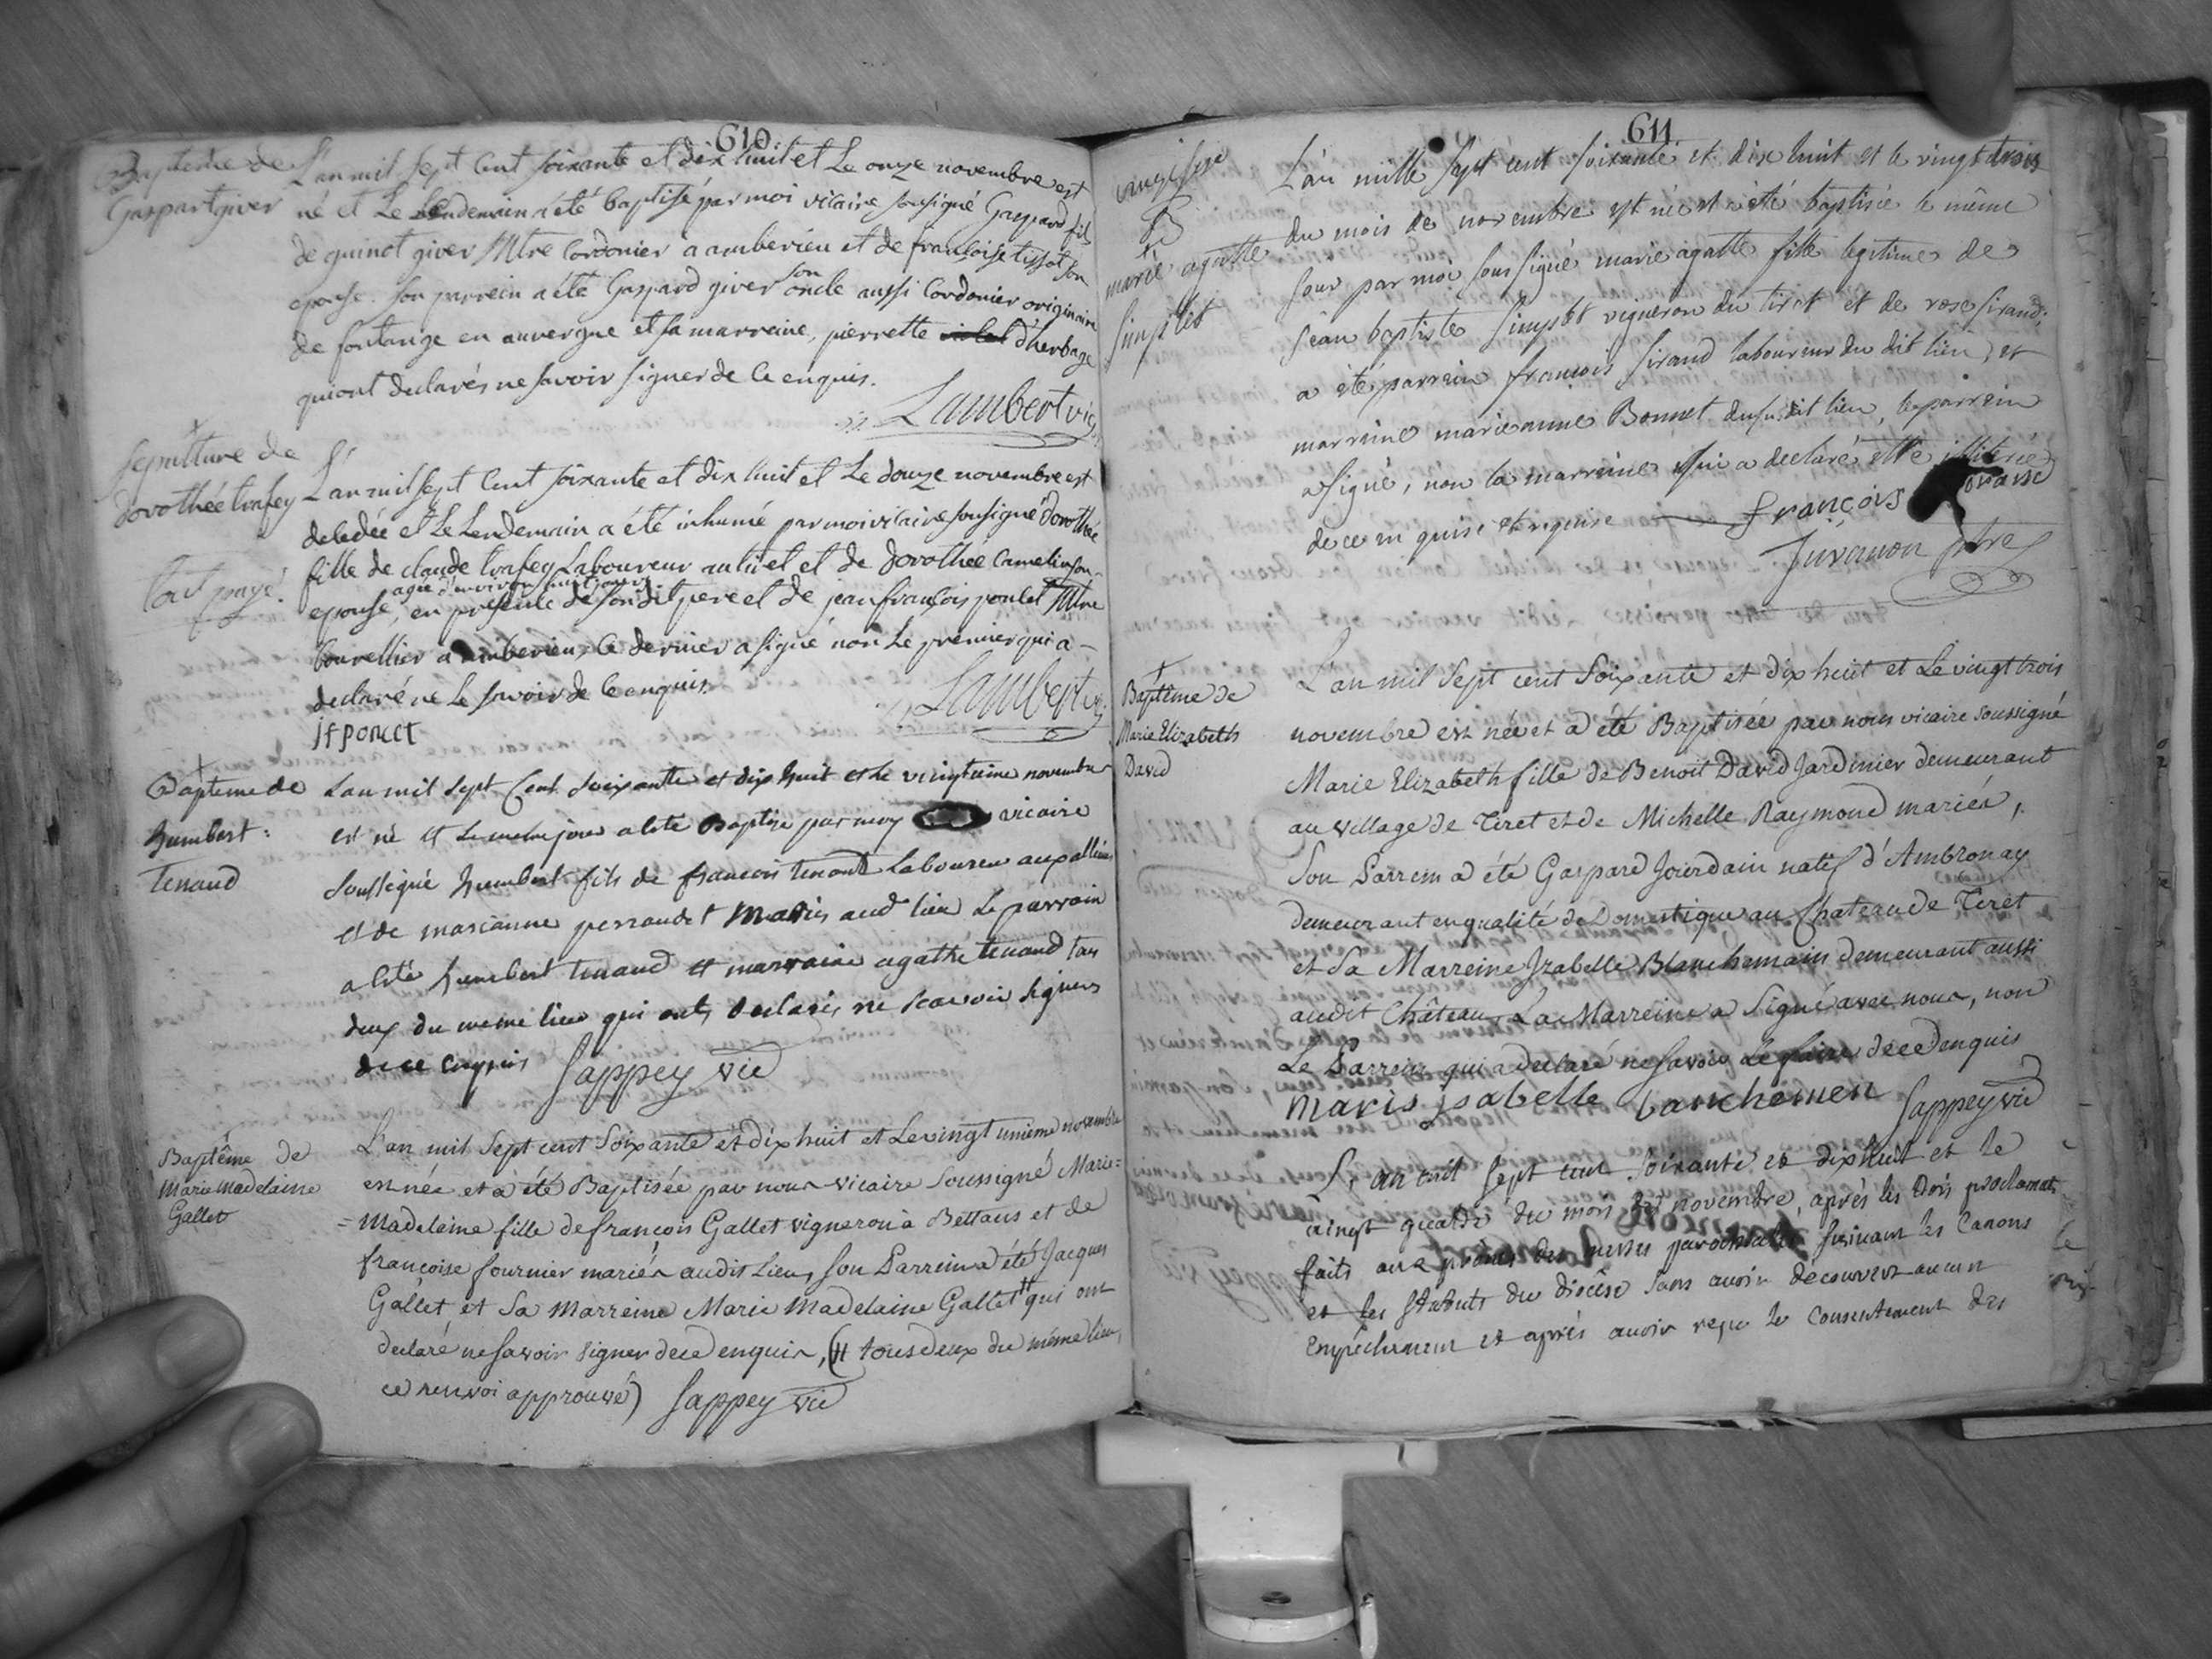 610.
Baptême de
Gaspart giver
L'an mil sept cent soixante et dix huit et Le onze novembre est
né et Le Lendemain a été baptisé par moi vicaire sousigné Gaspard fils
de guinot giver Mtre Cordonier a amberieu et de françoise tissot son
epouse. son parrein a été Gaspard giver son oncle aussi Cordonier originaire
de fontange en auvergne et sa marreine, pierrette d'herbage
qui ont declarés ne savoir signer de ce enquis.
Lambert vic
sepulture de
dorothée trafey
tout payé.
L'an mil sept Cent soixante et dix huit et Le douze novembre est
decedée et Le Lendemain a été inhumé par moi vicaire sousigné dorothée
fille de claude trafey Laboureur au tiret et de dorothée Camelin son
epouse, agée d'environ huit jours en présence de son dit pere et de jean françois poncet Mtre
bourellier a amberieu, Ce dernier a signé non Le premier qui a
declaré ne Le savoir de Ce enquis
Lambert vic
jf poncet
Bapteme de
humbert
Tenand
L'an mil sept Cent soixante et dix huit et le vingtieme novembre
est né et le meme jour a eté Baptise par moy vicaire
soussigné humbert fils de francois tenand Laboureur aux allimes
et de marianne perraudet mariés aud lieu Le parrain
a eté humbert tenand et marraine agathe tenand tous
deux du meme lieu qui ont declarés ne scavoir signer
de ce enquis Sappey vic
Baptême de
Marie Madelaine
Gallet
L'an mil sept cent soixante et dix huit et Le vingt unieme novembre
est née et a été Baptisée par nous vicaire soussigné Marie=
=Madeleine fille de françois Gallet vigneron à Bettans et de
françoise fournier mariés audit Lieu, son Parrein a été Jacques
Gallet et Sa Marreine Marie Madelaine Gallet # qui ont
declaré ne savoir signer de ce enquis, (# tous deux du même lieu,
ce renvoi approuvé) Sappey vic
611
marie agathe
simplet
L'an mille sept cent soixante et dix huit et le vingt trois
du mois de novembre est née et a été baptisée le même
jour par moi sous signé marie agathe fille legitime de
Jean baptiste simplet vigneron du tiret et de rose sirand;
a été parrein françois sirand laboureur du dit lieu, et
marreine marieanne Bonnet du susdit lieu, le parrein
a signé, non la marreine qui a declaré être illiterée
de ce enquise et requise françois
Juvanon ptre
Baptême de
Marie Elizabeth
David
L'an mil sept cent soixante et dix huit et Le vingt trois
novembre est née et a été Baptisée par nous vicaire soussigné
Marie Elizabeth fille de Benoit David Jardinier demeurant
au village de Tiret et de Michelle Raymond mariés,
Son Parrein a été Gaspard Jourdain natif d'Ambronay
demeurant en qualité de Domestique au Chateau de Tiret
et Sa Marreine Izabelle Blanchemain demeurant aussi
audit Château, La Marreine a Signé avec nous, non
Le Parrein qui a declaré ne savoir Le faire de ce enquis
maris isabelle banchemen Sappey vic
L'an mil sept cent soixante et dix huit et le
vingt quatre du mois de novembre, après les trois proclamats
faits aux prônes des messes paroissiales suivant les Canons
et les statuts du diocèse sans avoir découvert aucun
Empêchement et après avoir reçu le consentement des